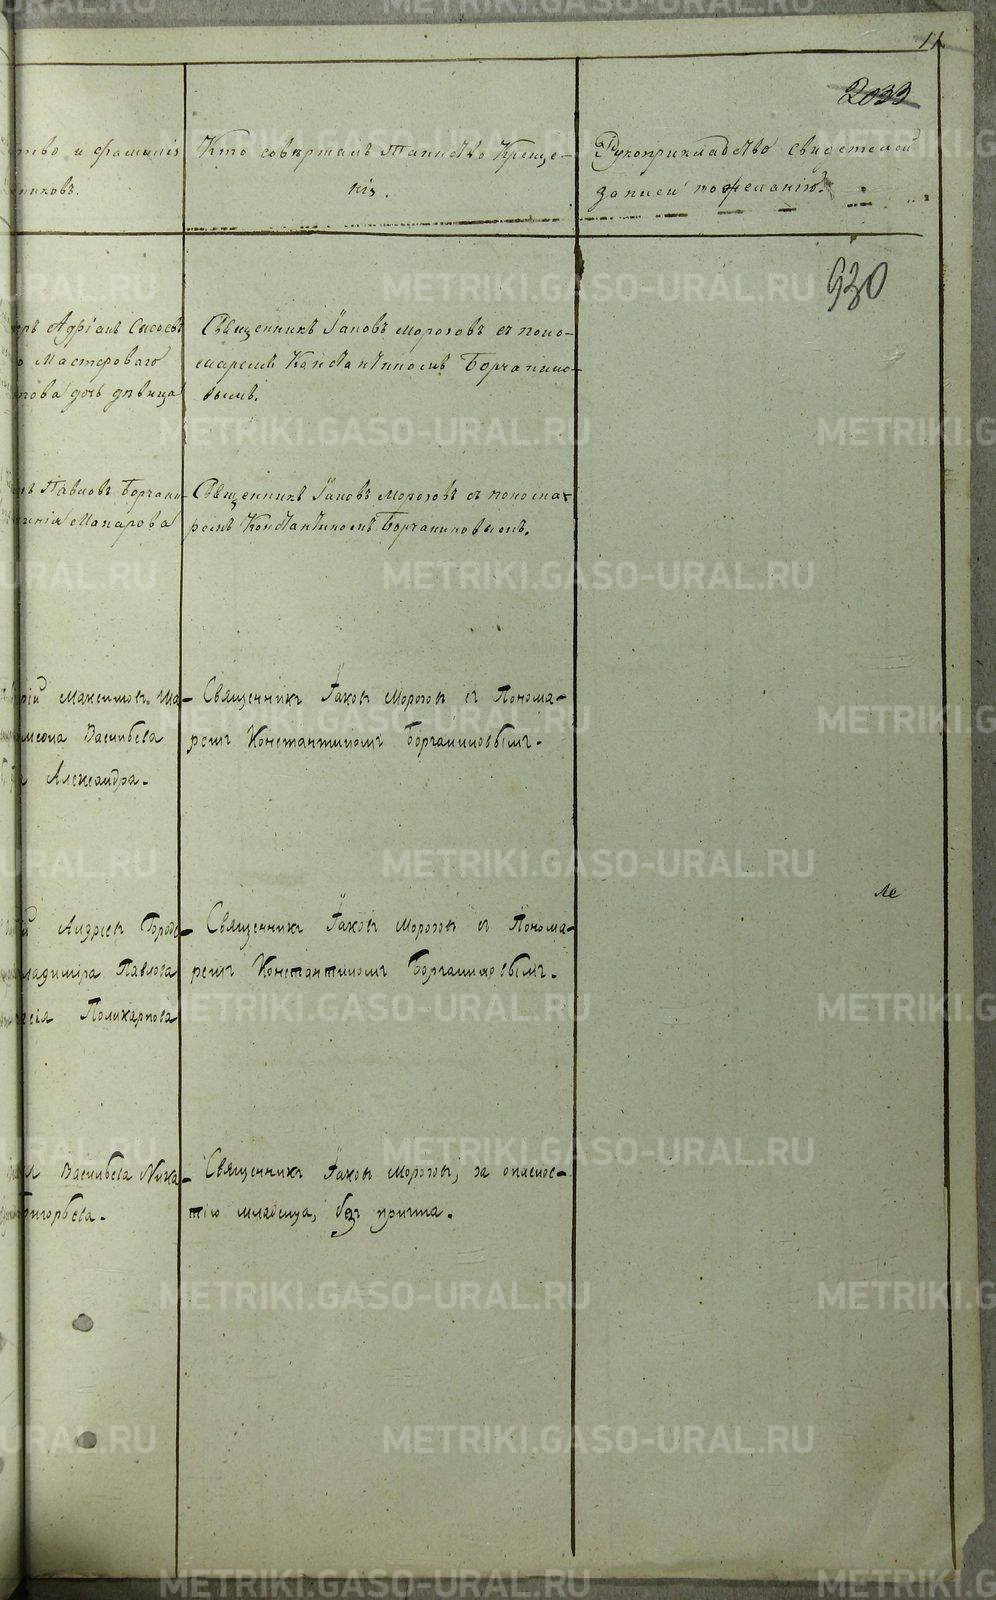 11
2033
ство и фамилія
никовъ.
Кто совершалъ Таинство Креще-
нія.
Рукоприкладство свидетелей
записи по желанію.
930
Адріанъ Сысоевъ
Мастероваго
пова дочь дѣвица
Священникъ Іаковъ Морозовъ съ поно-
маремъ Константиномъ Борчанино-
вымъ.
Павловъ Борчани-
Макарова
Священникъ Іаковъ Морозовъ съ понома-
ремъ Константиномъ Борчаниновымъ.
Максимовъ Ша-
Васильева
Александра.
Священникъ Іаковъ Морозовъ съ Понома-
ремъ Константиномъ Борчаниновымъ.
Андреевъ Бородо-
ладиміра Павлова
Поликарпова
Священникъ Іаковъ Морозовъ съ Понома-
ремъ Константиномъ Борчаниновымъ.
Васильева Ника-
ригорьева.
Священникъ Іаковъ Морозовъ, за опаснос-
тію младенца, безъ причта.
METRIKI.GASO-URAL.RU